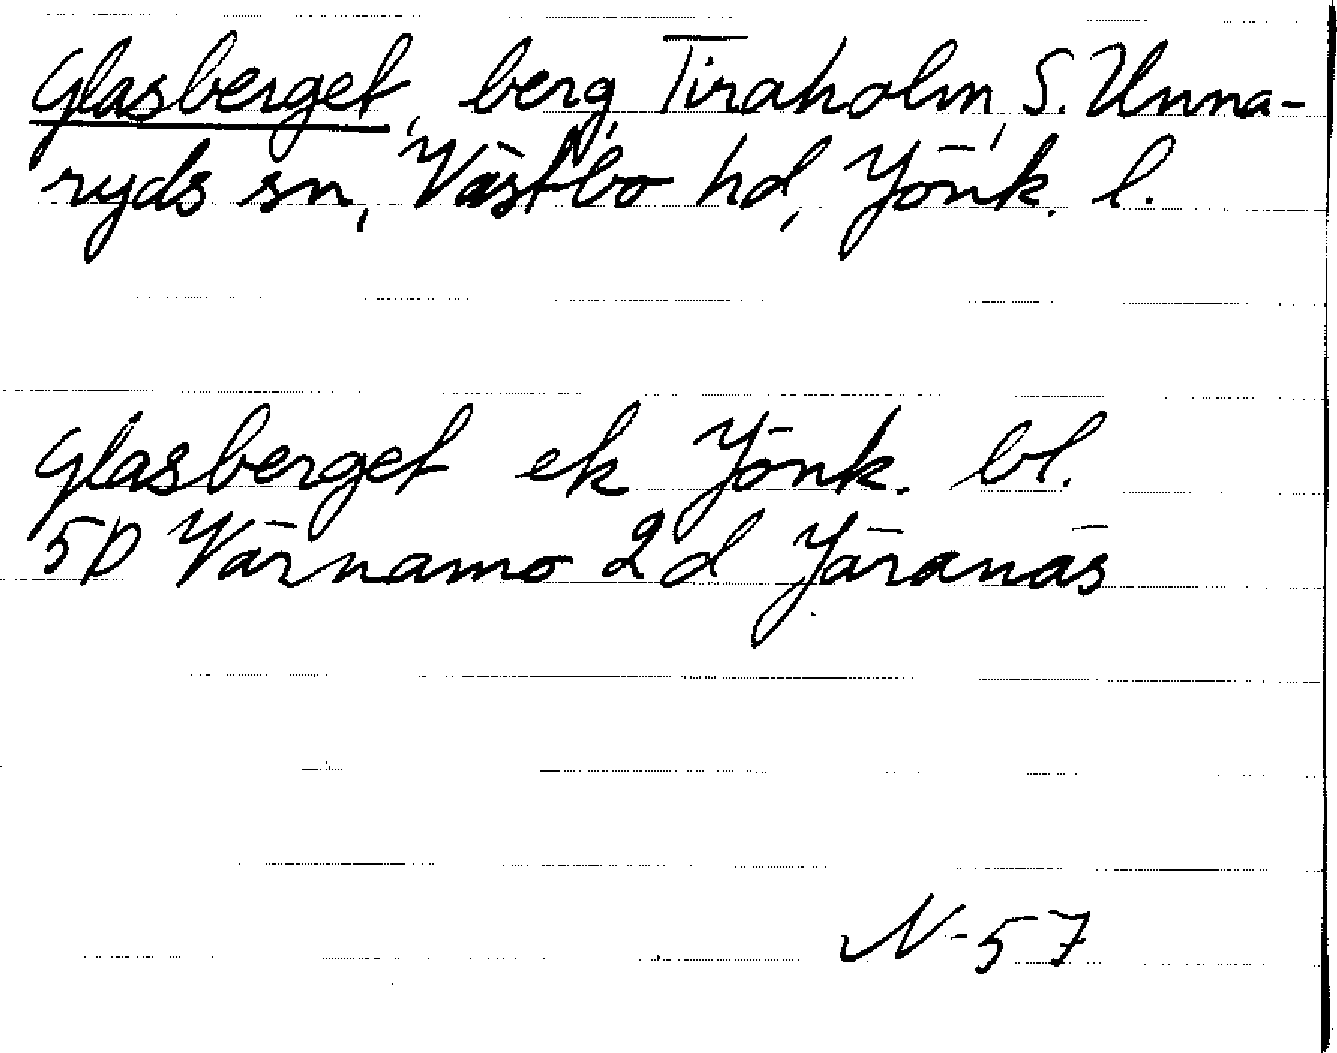 Glasberget, berg, Tiraholm, S. Unna-
ryds sn, Västbo hd, Jönk. l.
Glasberget ek Jönk. bl.
5D Värnamo 2d Järanäs
N-57